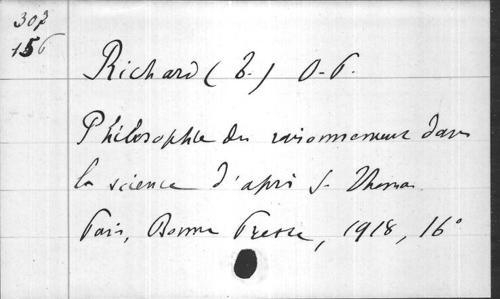 307
156
Richard (T.) O.P.
Philosophie du raisonnement dans
la science d'après S. Thomas
Paris, Bonne Presse, 1918, 16°